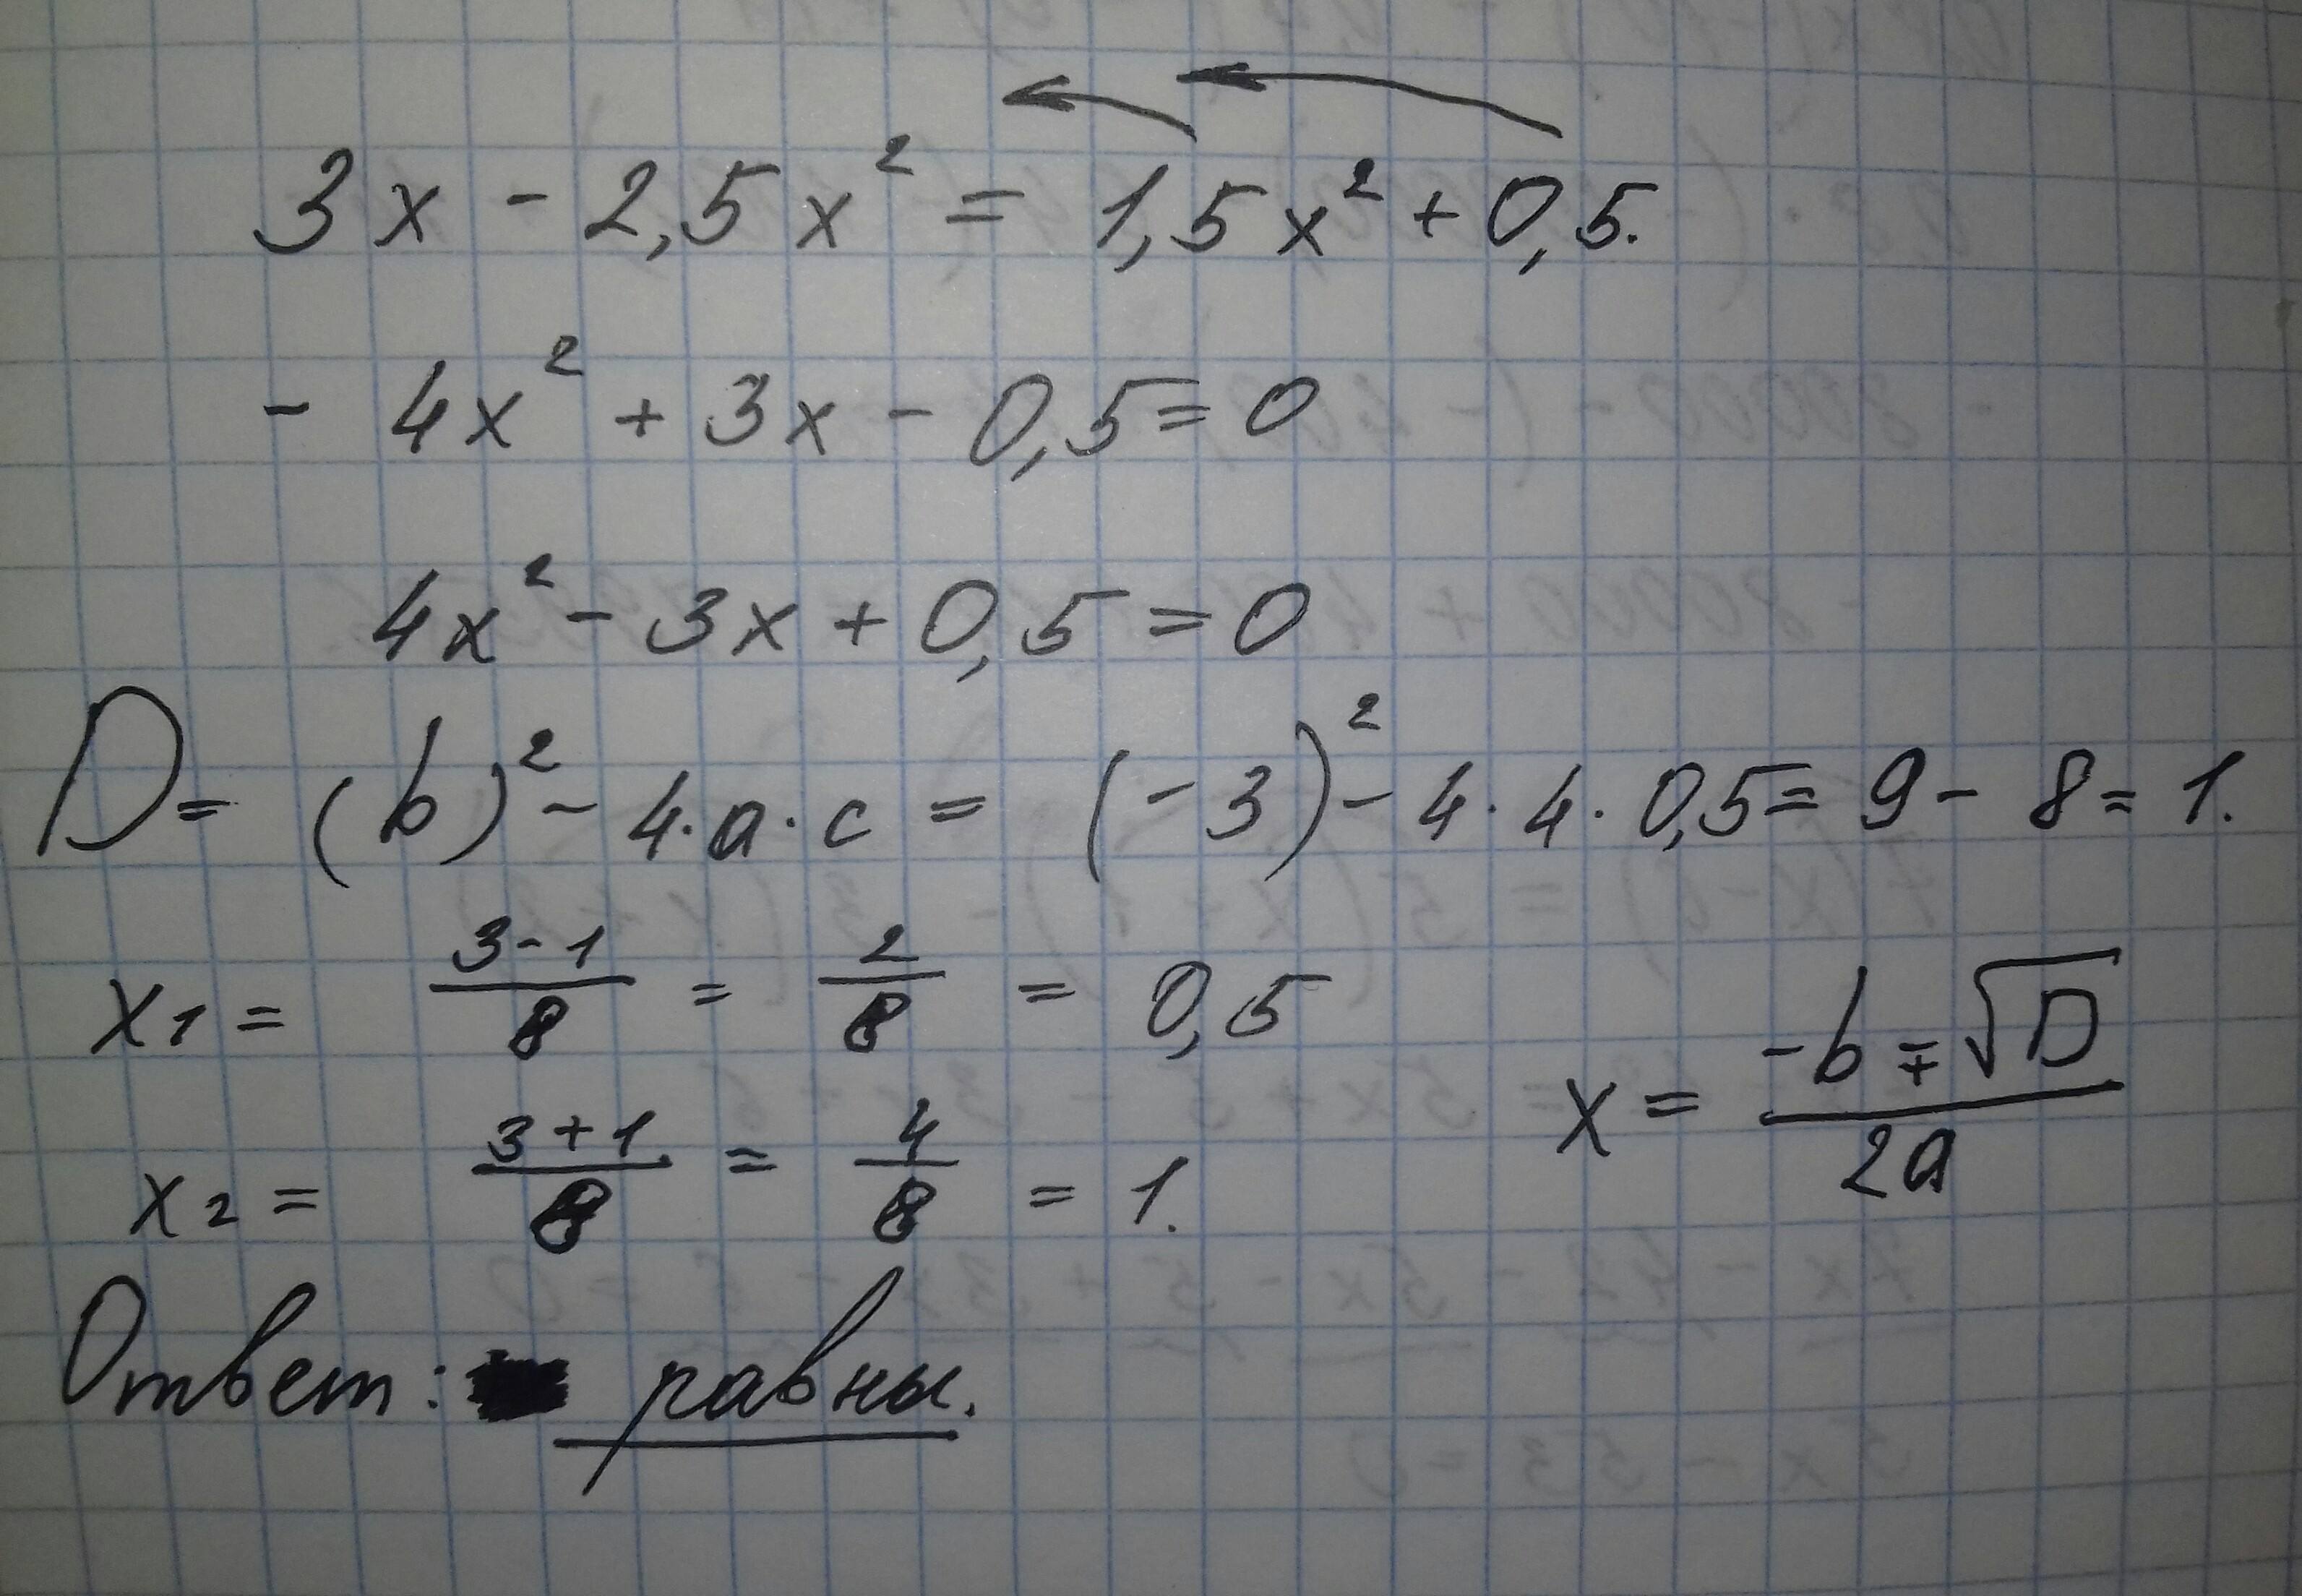 3x - 2,5x² = 1,5x² + 0,5.
- 4x² + 3x - 0,5 = 0
4x² - 3x + 0,5 = 0
D = (b)² - 4·a·c = (-3)² - 4·4·0,5 = 9 - 8 = 1.
x₁ = (3-1)/8 = 2/8 = 0,5
x = (-b ∓ √D)/2a
x₂ = (3+1)/8 = 4/8 = 1.
Ответ: равны.